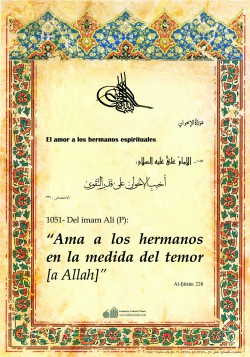 مودّة الإخوان
El amor a los hermanos espirituales
الإمامُ عليٌّ عليه السلام:
أَحْبِبِ الإِخْوَانَ عَلَى قَدْرِ التَّقْوَى
1051- Del imam Alí (P):
“Ama a los hermanos
en la medida del temor
[a Allah]”
Al-Ijtisás: 226